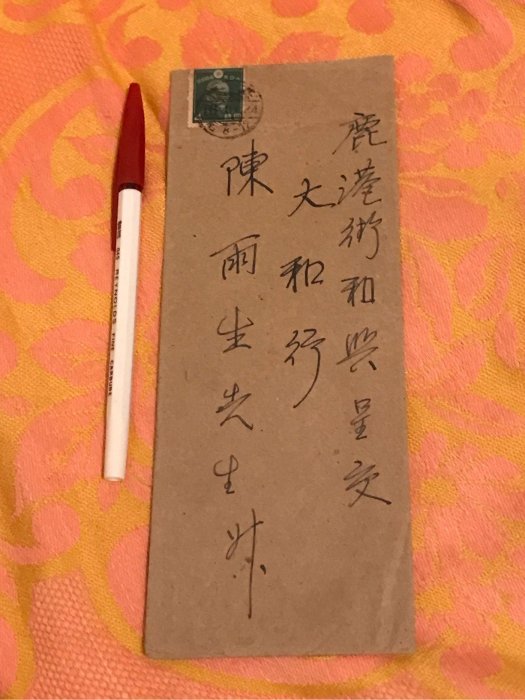 鹿港街和興呈交
大和行
陳雨生先生
REYNOLDS FINE CARBURE